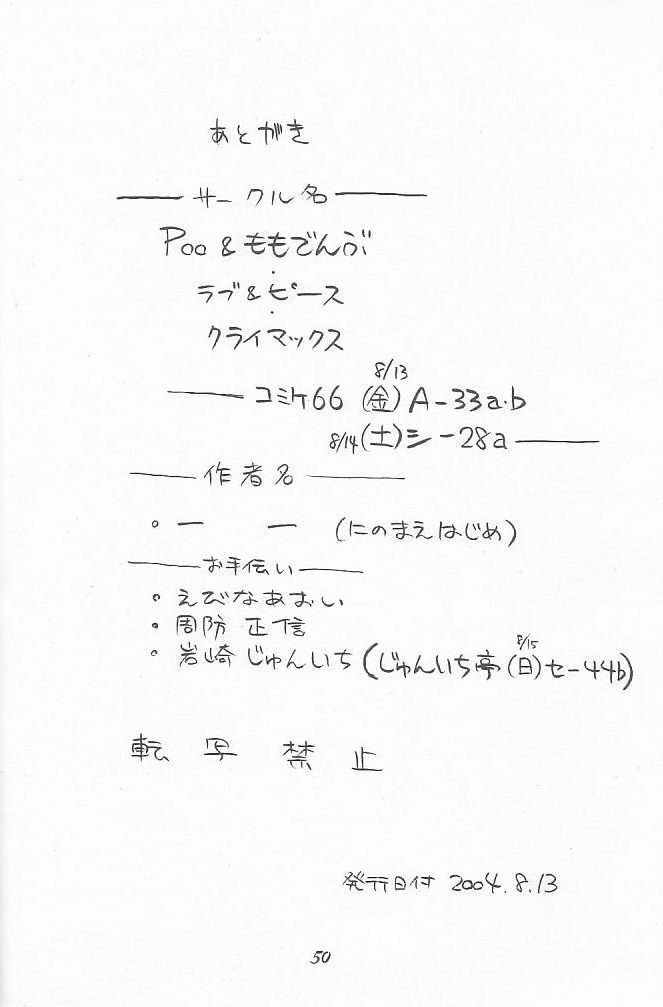 あとがき
サークル名
Poo & ももでんぶ
ラブ&ピース
クライマックス
8/13
コミケ66 (金) A-33a.b
8/14(土)シ-28a
作者名
。一 一 (にのまえはじめ)
お手伝い
。えびなあおい
。周防 正信
8/15
。岩崎 じゅんいち(じゅんいち亭(日)セ-44b)
転写禁止
発行日付 2004.8.13
50